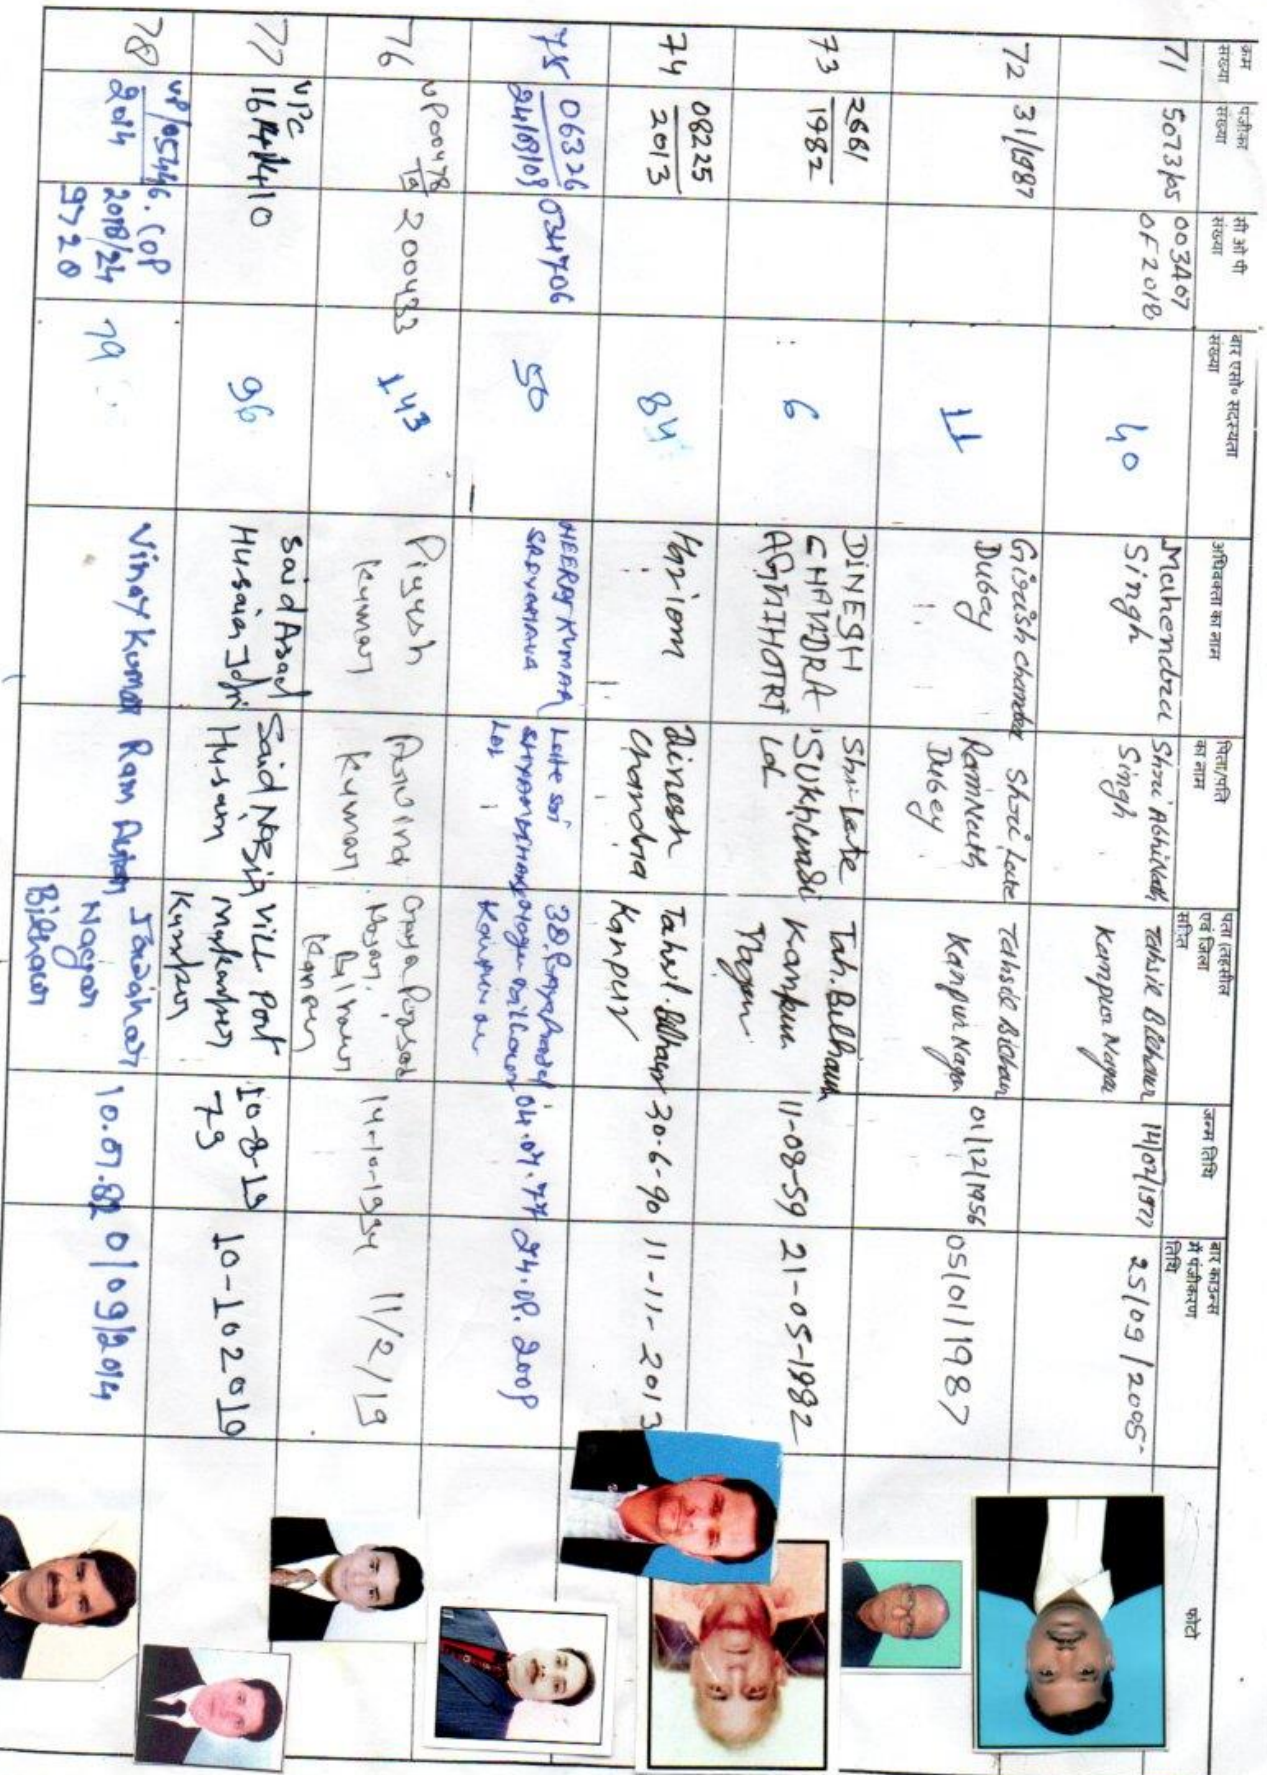 क्रम संख्या
पंजीकरण संख्या
सी ओ पी संख्या
बार एसो० सदस्यता संख्या
अधिवक्ता का नाम
पिता/पति का नाम
पता (तहसील एवं जिला सहित)
जन्म तिथि
बार काउन्स में पंजीकरण तिथि
फोटो
71
5073/05
003407
OF 2018
40
Mahendra
Singh
Shri Abhilakh
Singh
Tahsil Bilhaur
Kanpur Nagar
25/09/2005-
72
31/1987
11
Girish chandra
Dubey
Shri Late
RamNath
Dubey
Tahsil Bilhaur
Kanpur Nagar
01/12/1956
05/01/1987
73
2661
1982
6
DINESH
CHANDRA
AGNIHOTRI
Shri Late
Tah. Bilhaur
Kanpur
Nagar
11-08-59
21-05-1982
74
08225
2013
84
Hariom
Dinesh
Chandra
Tahsil. Bilhaur
Kanpur
30-6-90
11-11-2013
75
06326
034706
50
NEERAJ KUMAR
Late Sri
Lal
04.07.77
76
UP00478
19
200433
143
Piyush
Kumar
Arvind
Kumar
Gaya Prasad
Nagar.
Bilhaur
Kanpur
11/2/19
77
96
Said Asad
Said
10-8-19
79
10-102019
78
UP/05446.
2014
COP
2018/24
9720
79
Vinay Kumar
Ram
Jawahar
Nagar
Bilhaur
10.07.82
01/09/2014